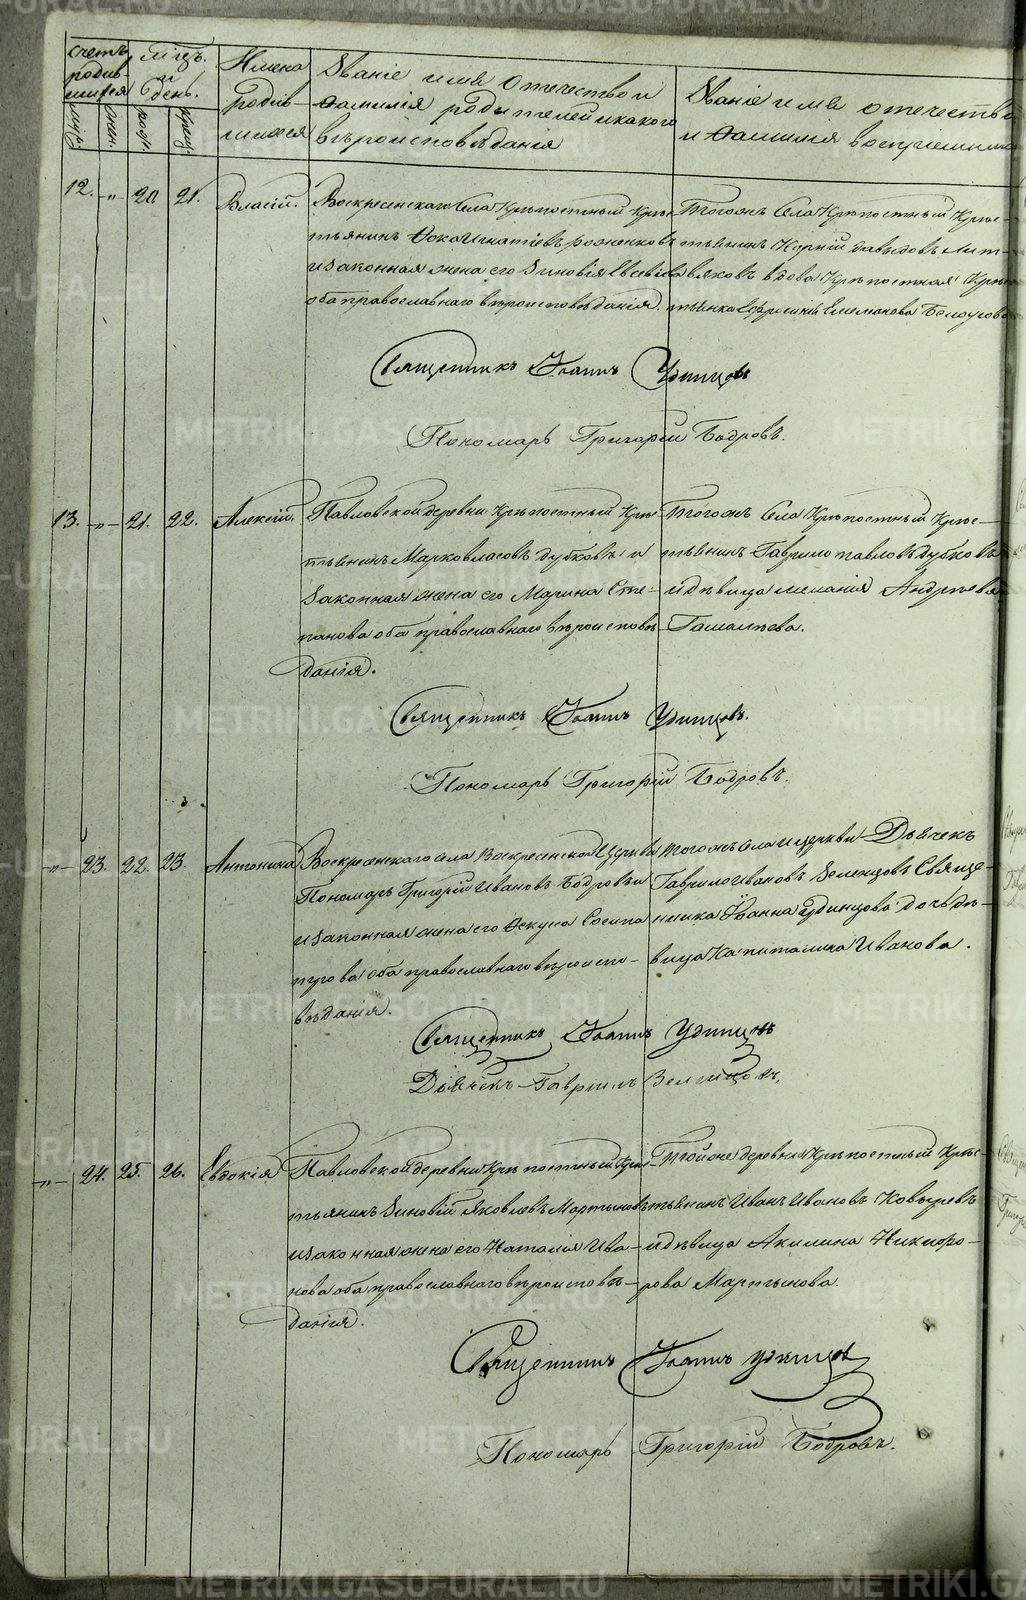 Счетъ родив-шихся
мѣцъ. и день.
Имена родив-шихся
Званіе имя отечество и
Фамилія родителей и какого
вѣроисповѣданія
Званіе имя отечество
и Фамилія воспріемник
муж. жен. род. крещ.
12. -„- 20 21. Власій.
Воскресенскаго села Крѣпостный Крес-
тьянинъ Фока Игнатіевъ
и законная жена его Зиновія
оба православнаго вѣроисповѣданія.
Тогожъ Села Крѣпостный Крес-
тьянинъ Корнилій Давыдовъ
вдова Крѣпостная Крес-
тьянка Бѣлоусова
Священникъ Іоаннъ Удинцовъ
Пономарь Григорій Бодровъ.
13. -„- 21. 22. Алексій.
Павловской деревни Крѣпостный Крес-
тьянинъ Марко Власовъ Дубковъ и
Законная жена его Марина Сте-
панова оба православнаго вѣроисповѣ-
данія.
Тогожъ Села Крѣпостный Крес-
тьянинъ Гаврило Павловъ Дубковъ
и дѣвица Меланія Андреева
Священникъ Іоаннъ Удинцовъ.
Пономарь Григорій Бодровъ.
-„- 23. 22. 23. Антонина
Воскресенскаго села Воскресенской Церкви
Пономарь Григорій Ивановъ Бодровъ и
и законная жена его Фскуса Сосипа
трова оба православнаго вѣроиспо-
вѣданія.
Тогожъ Села и церкви Дьячекъ
Гаврило Ивановъ Зеленцовъ Свяще-
нника Іоанна Удинцова дочь дѣ-
вица Капиталина Иванова.
Священникъ Іоаннъ Удинцовъ
Дьячекъ Гавріилъ Зеленцовъ,
-„- 24. 25. 26. Евдокія
Павловской деревни Крѣпостный Крес-
тьянинъ Зиновій Яковлевъ Мартыновъ
и законная жена его Наталія Ива-
нова оба православнаго вѣроисповѣ-
данія.
Тойже деревни Крѣпостный Крес-
тьянинъ Иванъ Ивановъ Ковыревъ
и дѣвица Акилина Никифо-
рова Мартынова.
Священникъ Іоаннъ Удинцовъ
Пономарь Григорій Бодровъ.
METRIKI.GASO-URAL.RU